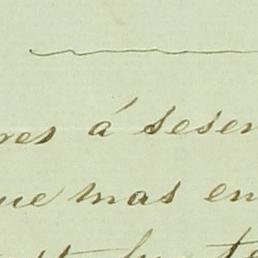 res á sesen
ue mas en